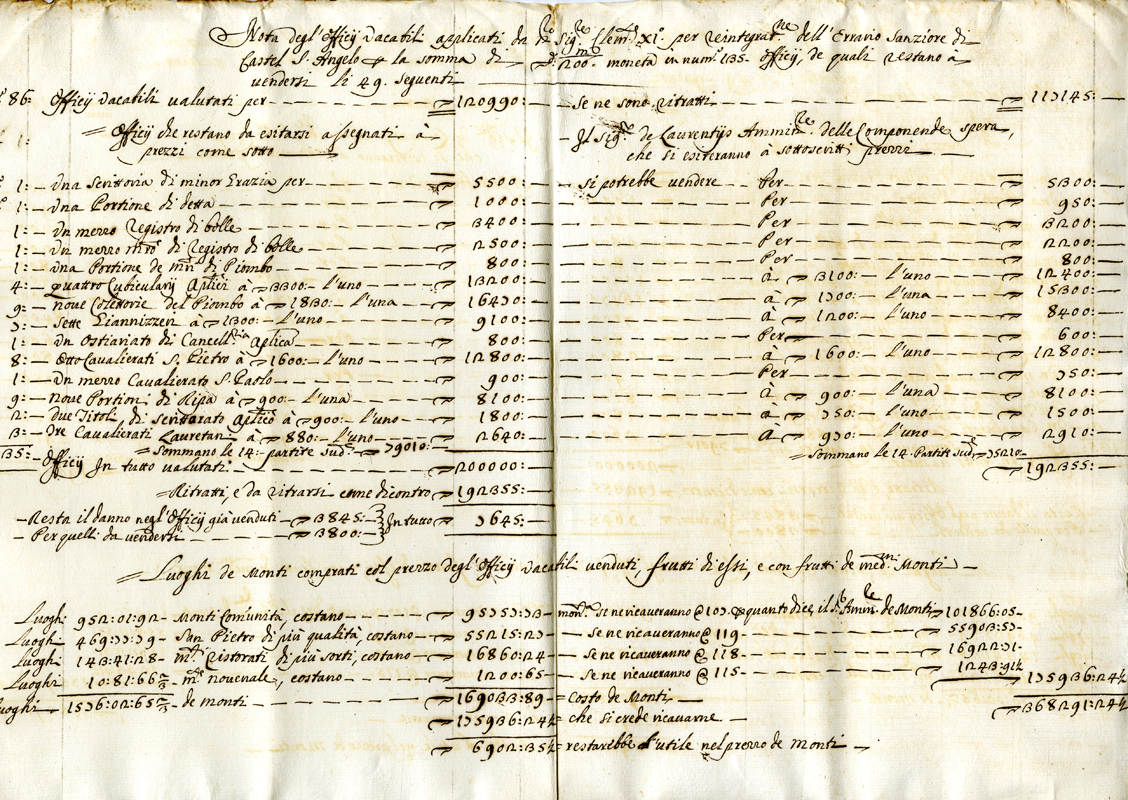 Nota degl'Officij Vacabili applicati da N.ro Sig.re Clem.te XI.o per reintegrat.ne dell'Errario Sanziore di
Castel S. Angelo p la somma di 200.m moneta in num.o 135. Officij, de quali restano à
vendersi li 49. seguenti
86: Officij vacabili valutati per 120990: Se ne sono ritratti 117145:
= Officij che restano da esitarsi assegnati à prezzi come sotto
Il Sig.re de Laurentijs Ammin.re delle Componende spera, che si esiteranno à sottoscritti prezzi
1: Una Scrittoria di minor Grazia per 5500: Si potrebbe vendere Per 5300:
1: Una Portione di detta 1000: Per 950:
1: Un mezzo Registro di bolle 3400: Per 3200:
1: Un mezzo m̃ro di Registro di bolle 2500: Per 2200:
1: Una Portione de m̃ri di Piombo 800: Per 800:
4: quattro Cubiculary Aplici à 3300: l'uno 13200: à 3100: l'uno 12400:
9: nove Collettorie del Piombo à 1830: l'una 16470: à 1700: l'una 15300:
7: Sette Giannizzeri à 1300: l'uno 9100: à 1200: l'uno 8400:
1: Un Ostiariato di Cancell.ria Aplica 800: Per 600:
8: Otto Cavalierati S. Pietro à 1600: l'uno 12800: à 1600: l'uno 12800:
1: Un mezzo Cavalierato S. Paolo 900: Per 750:
9: nove Portioni di Ripa à 900: l'una 8100: à 900: l'una 8100:
2: due Titoli di Scrittorato Aplico à 900: l'uno 1800: à 750: l'uno 1500:
3: Tre Cavalierati Lauretani à 880: l'uno 2640: à 970: l'uno 2910:
= Sommano le 14: partite sud.e 79010: = Sommano le 14 Partite sud.e 75210:
135: Officij In tutto valutati 200000: 192355:
= Ritratti, e da ritrarsi come dicontro 192355:
Resta il danno negl'Officij già venduti 3845: In tutto 7645:
Per quelli da vendersi 3800:
= Luoghi de Monti comprati col prezzo degl'Officij Vacabili venduti, frutti di essi, e con frutti de med.mi Monti
Luoghi 952:01:92 Monti Comunità, costano 95753:73 mon.ta Se ne ricaveranno @ 107. p quanto dice il S. Amm.re de Monti 101866:05
Luoghi 469:77:79 San Pietro di più qualità, costano 55215:27 Se ne ricaveranno @ 119 55903:57
Luoghi 143:41:28 m.ti Ristorati di più sorti, costano 16860:24 Se ne ricaveranno @ 118 16922:71
Luoghi 10:81:66⅔ m.te novenale, costano 1200:65 Se ne ricaveranno @ 115 1243:91½
Luoghi 1576:02:65⅔ de monti 169033:89 = Costo de Monti 175936:24½
175936:24½ = che si crede ricavarne 368291:24½
6902:35½ = restarebbe l'utile nel prezzo de Monti